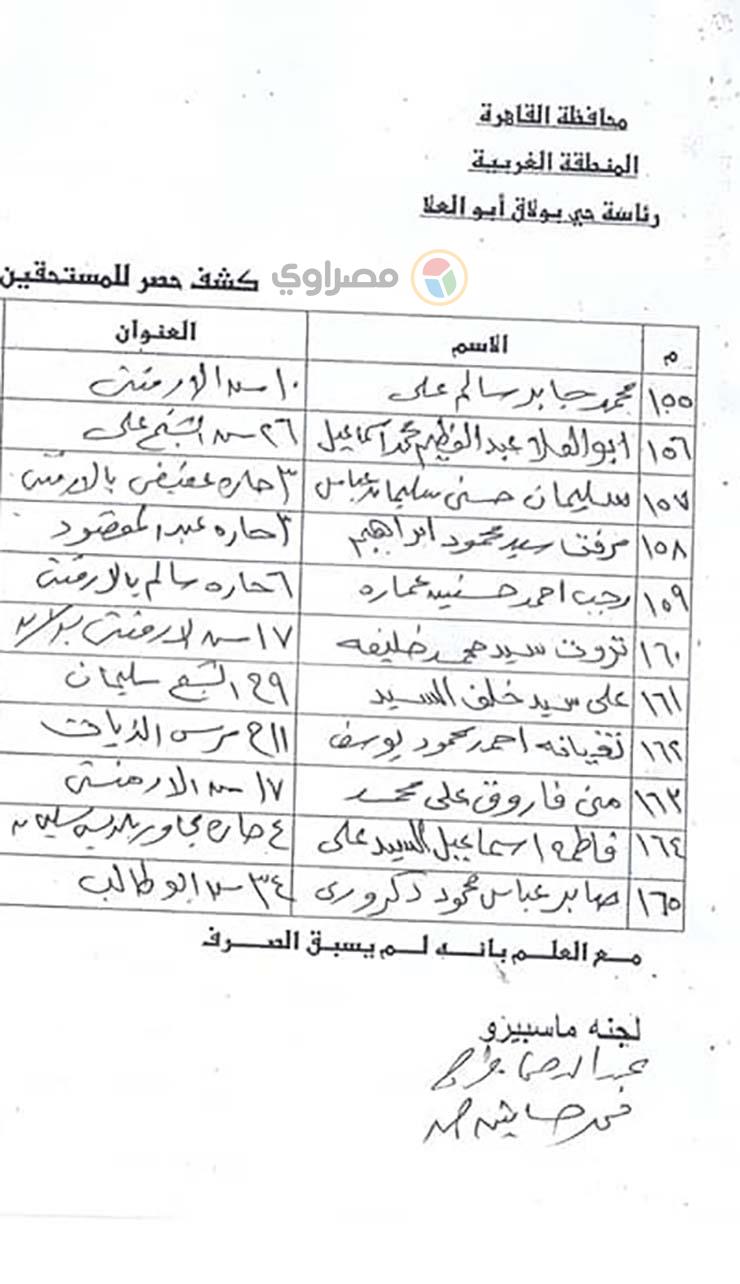 محافظة القاهرة
المنطقة الغربية
رئاسة حي بولاق أبو العلا
كشف حصر للمستحقين
مصراوي
م الاسم العنوان
١٥٥ محمد جابر سالم على ١٠ ش الارمنتى
١٥٦ ابوالعلا عبد العظيم محمد اسماعيل ٢٦ ش الشيخ على
١٥٧ سليمان حسنى سليمان عباس ٣ حاره عفيفى بالارمنتى
١٥٨ مرفت سيد محمود ابراهيم ٣ حاره عبد المقصود
١٥٩ رجب احمد حسنين عماره ٦ حاره سالم بالارمنتى
١٦٠ ثروت سيد محمد خليفه ١٧ ش الارمنتى
١٦١ على سيد خلف السيد ٩ ح الشيخ سليمان
١٦٢ احمد محمود يوسف ١١ ح مرسى الزيات
١٦٣ منى فاروق على محمد ١٧ ش الارمنتى
١٦٤ فاطمه اسماعيل السيد على ٤ حاره
١٦٥ صابر عباس محمود دكرورى ٣٤ ش ابو طالب
مع العلم بانه لم يسبق الصرف
لجنه ماسبيرو